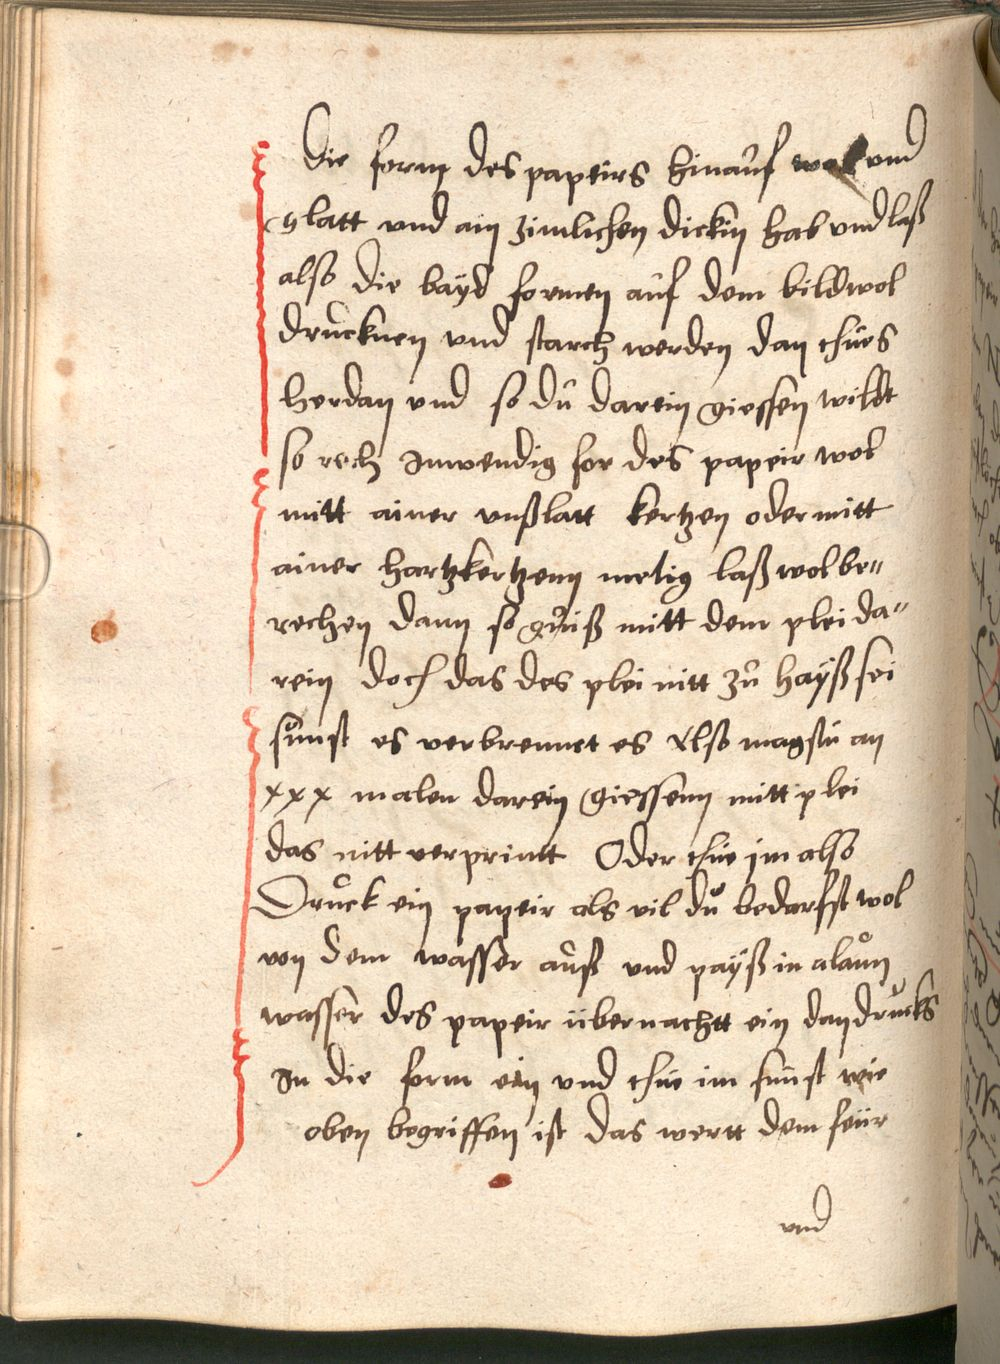 die form des papeirs hinauf wol vnd
glatt vnd ain zimlichen dickin hab vnd laß
also die bayd formen auf dem bild wol
drucknen vnd starch werden dan thues
herdan vnd so du darein giessen wildt
so rech Inwendig for des papeir wol
mitt ainer vnßlatt kertzen oder mitt
ainer hartzkertzenn metig laß wol be„
rechen dann so geuiß mitt dem plei da„
rein doch das des plei nitt zu hayß sei
sunst es verbrennet es Also magstu an
xxx malen darein giessenn mitt plei
das nitt verprintt Oder thue im also
Druck ein papeir als vil du bedarfst wol
von dem wasser auß vnd payß in alaun
wasser des papeir übernachtt ein dan drucks
In die form ein vnd thue im sunst wie
oben begriffen ist das wertt dem feür
vnd